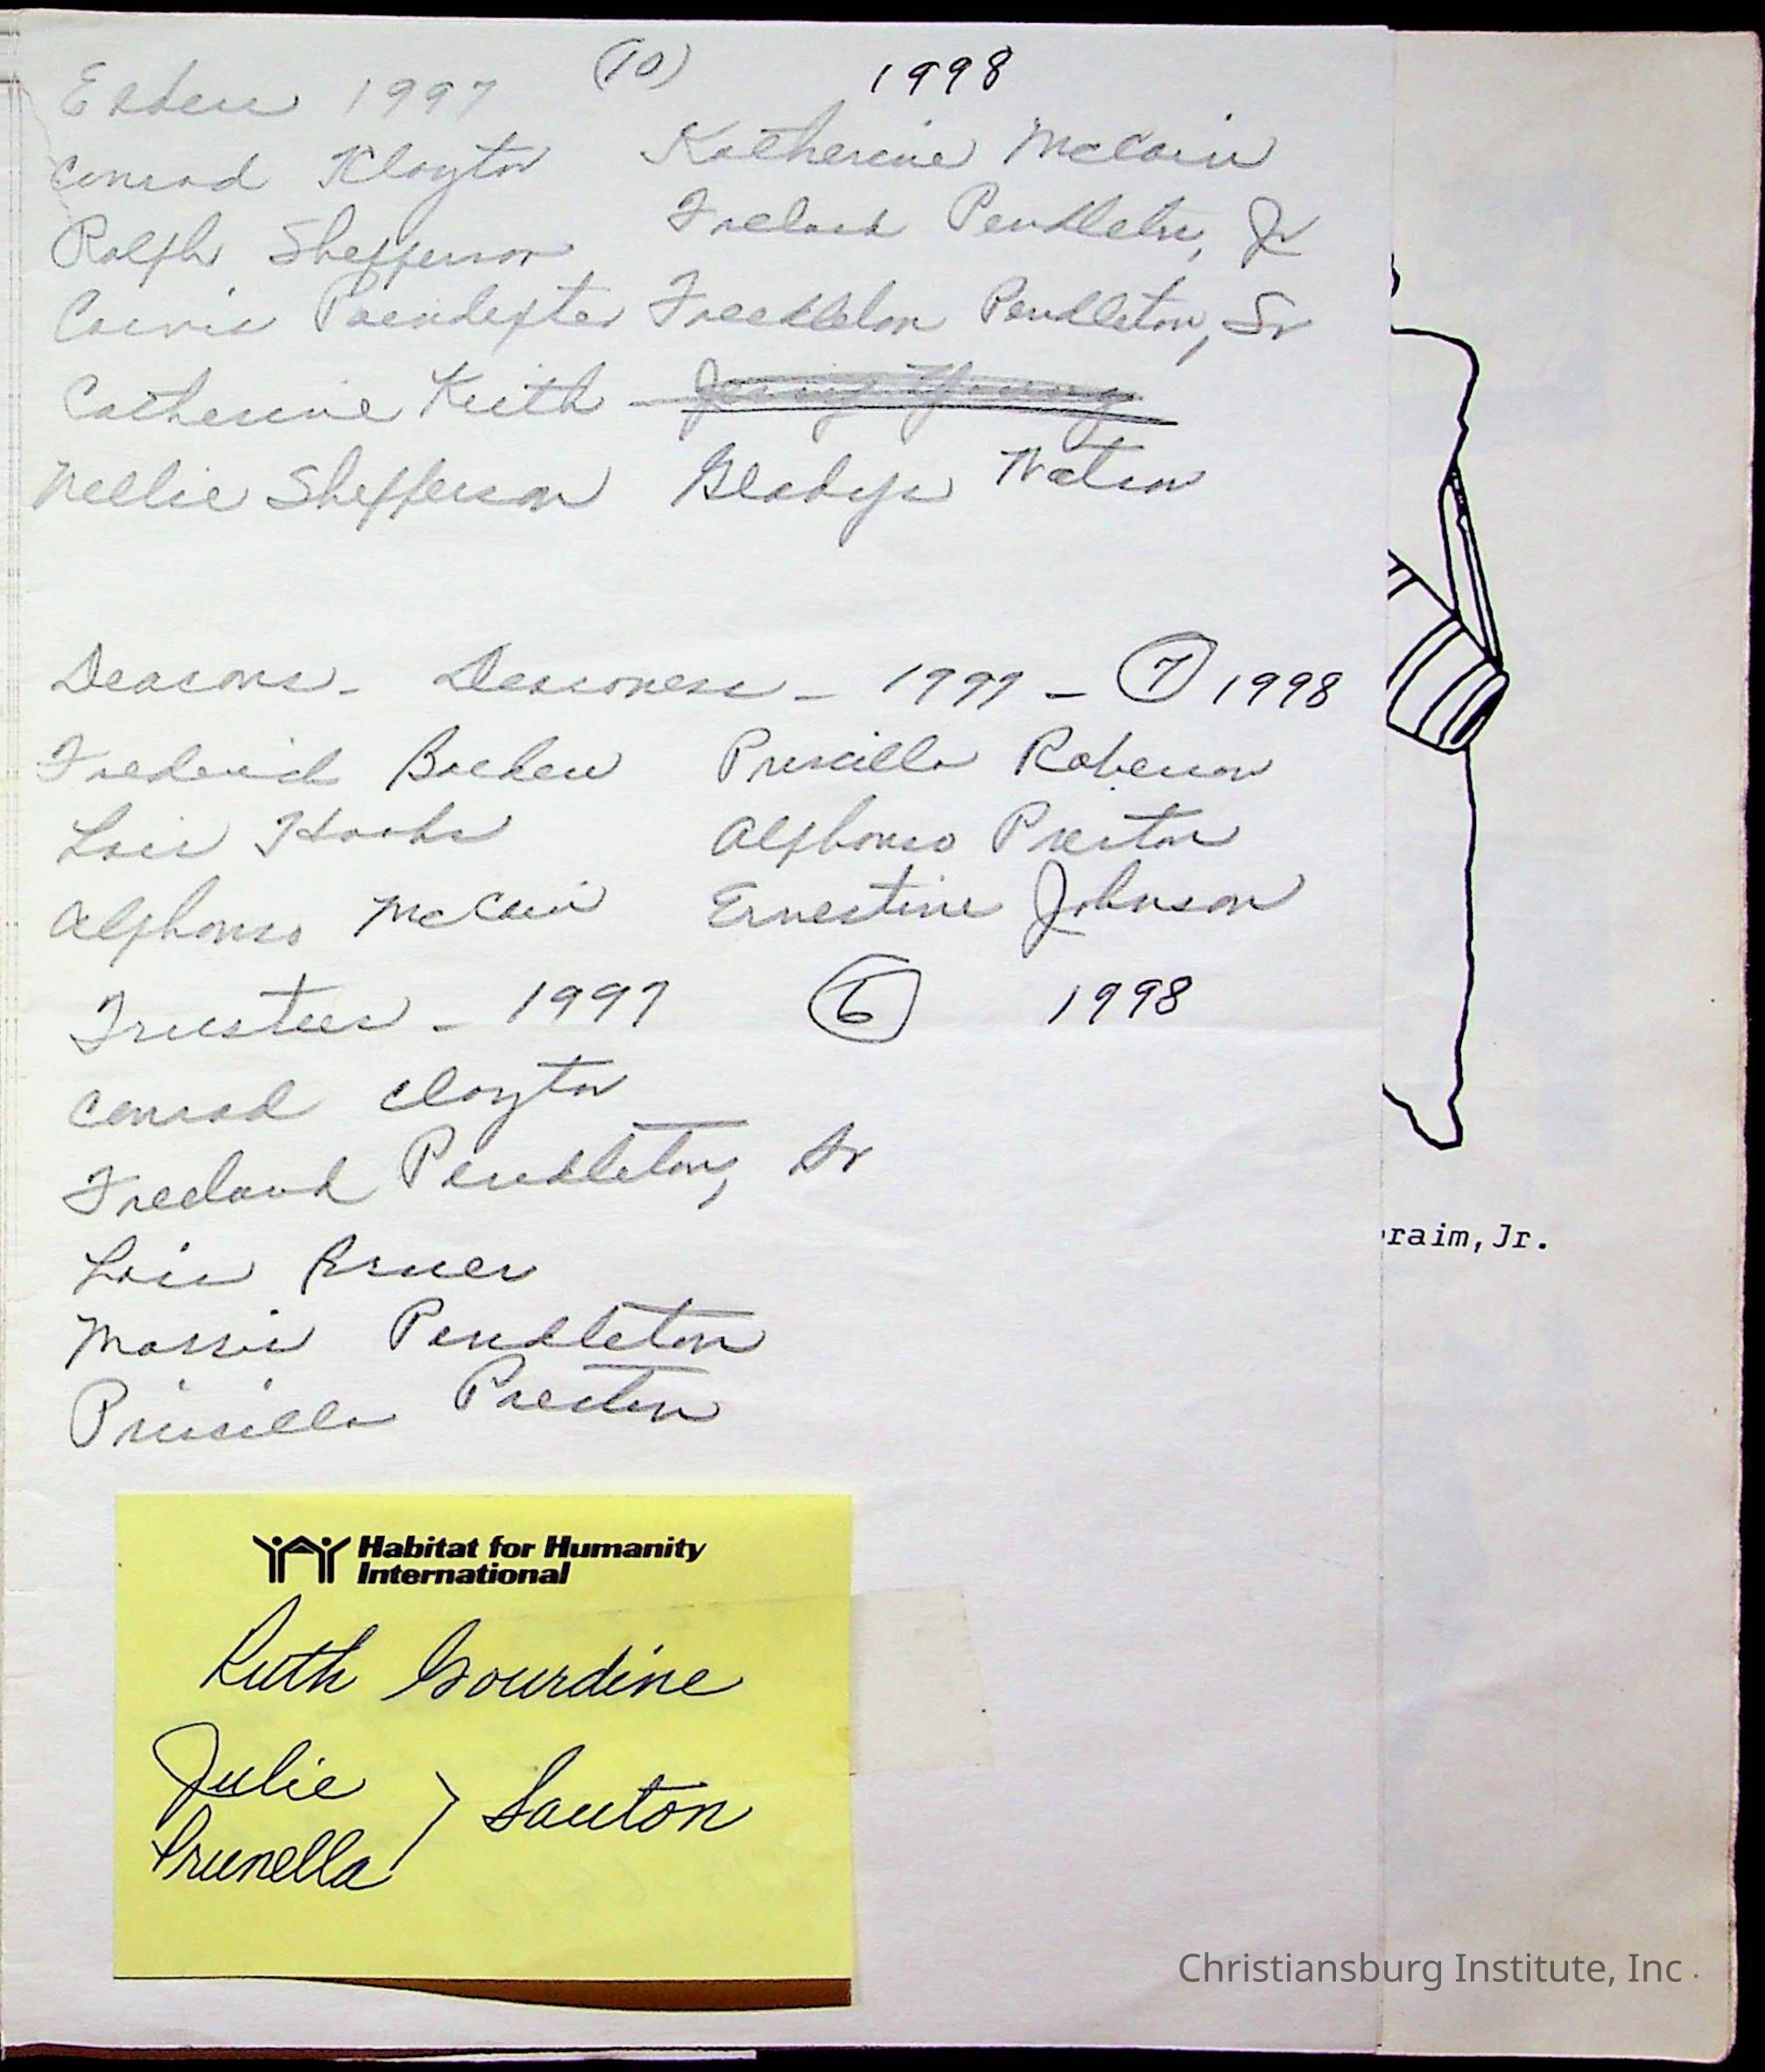 Elders 1997 (10) 1998
Conrad Klayton Katherine McCain
Ralph Shepperson Freeland Pendleton, Jr
Poindexter Pendleton, Sr
Catherine Keith - Jenny Young
Nellie Shepperson Gladys Watson
Deacons - Deaconess - 1997 - 7 1998
Frederick Priscilla Roberson
Lois Hoobs Alphonso Preston
Alphonso McCain Ernestine Johnson
Trustees - 1997 6 1998
Conrad Clayton
Freeland Pendleton, Sr
Lois
Pendleton
Priscilla Preston
raim, Jr.
Habitat for Humanity
International
Ruth Gourdine
Julie
} Sauton
Prunella
Christiansburg Institute, Inc